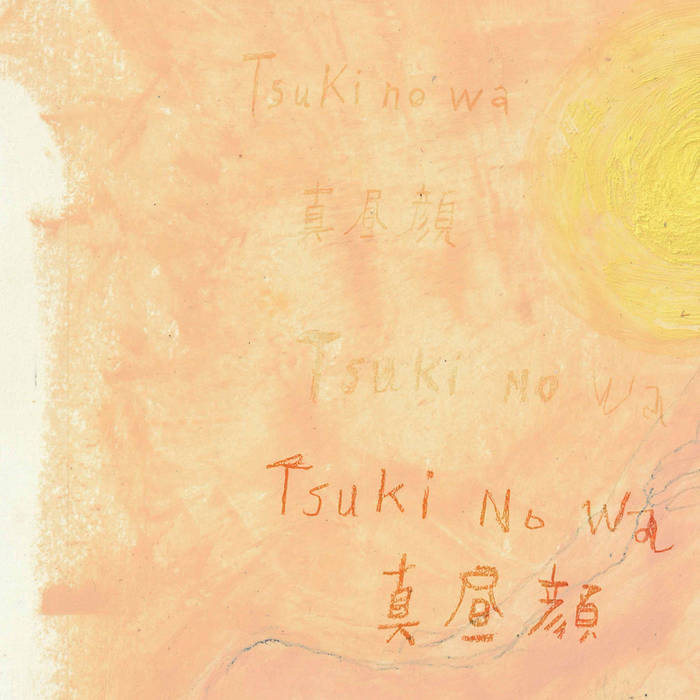 Tsuki no wa
真昼顔
Tsuki no wa
Tsuki No Wa
真昼顔